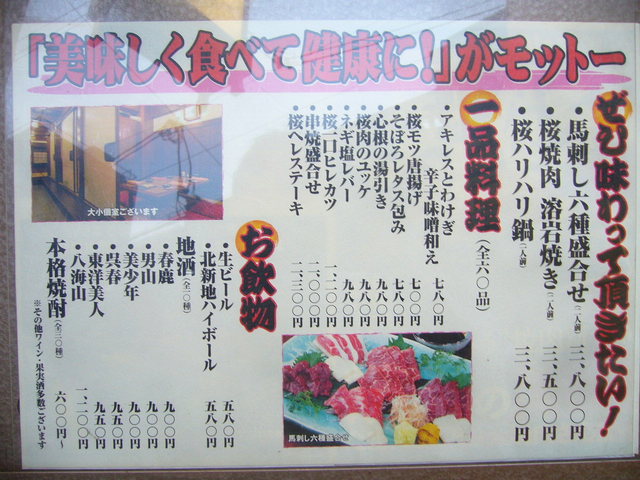 「美味しく食べて健康に！」がモットー
ぜひ味わって頂きたい！
・馬刺し六種盛合せ（二人前） 三、八〇〇円
・桜焼肉 溶岩焼き（二人前） 三、五〇〇円
・桜ハリハリ鍋（二人前） 三、八〇〇円
一品料理（全六〇品）
・アキレスとわけぎ
辛子味噌和え 七八〇円
・桜モツ唐揚げ 七〇〇円
・そぼろレタス包み 七八〇円
・心根の湯引き 九八〇円
・桜肉のユッケ 九八〇円
・ネギ塩レバー 九八〇円
・桜一口ヒレカツ 一、二〇〇円
・串焼盛合せ 二、〇〇〇円
・桜ヘレステーキ 二、三〇〇円
大小個室ございます
お飲物
・生ビール 五八〇円
・北新地ハイボール 五八〇円
地酒（全一〇種）
・春鹿 九〇〇円
・男山 九〇〇円
・美少年 九〇〇円
・呉春 九五〇円
・東洋美人 九五〇円
・八海山 一、二〇〇円
本格焼酎（全三〇種） 六〇〇円～
※その他ワイン・果実酒多数ございます
馬刺し六種盛合せ